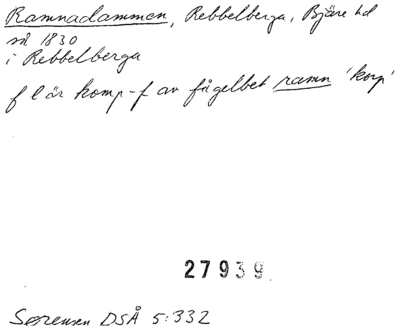 Ramnadammen, Rebbelberga, Bjäre hd
sñ 1830
i Rebbelberga
f l är komp-f av fågelbet ramn 'korp'
27939
Sørensen DSÅ 5:332